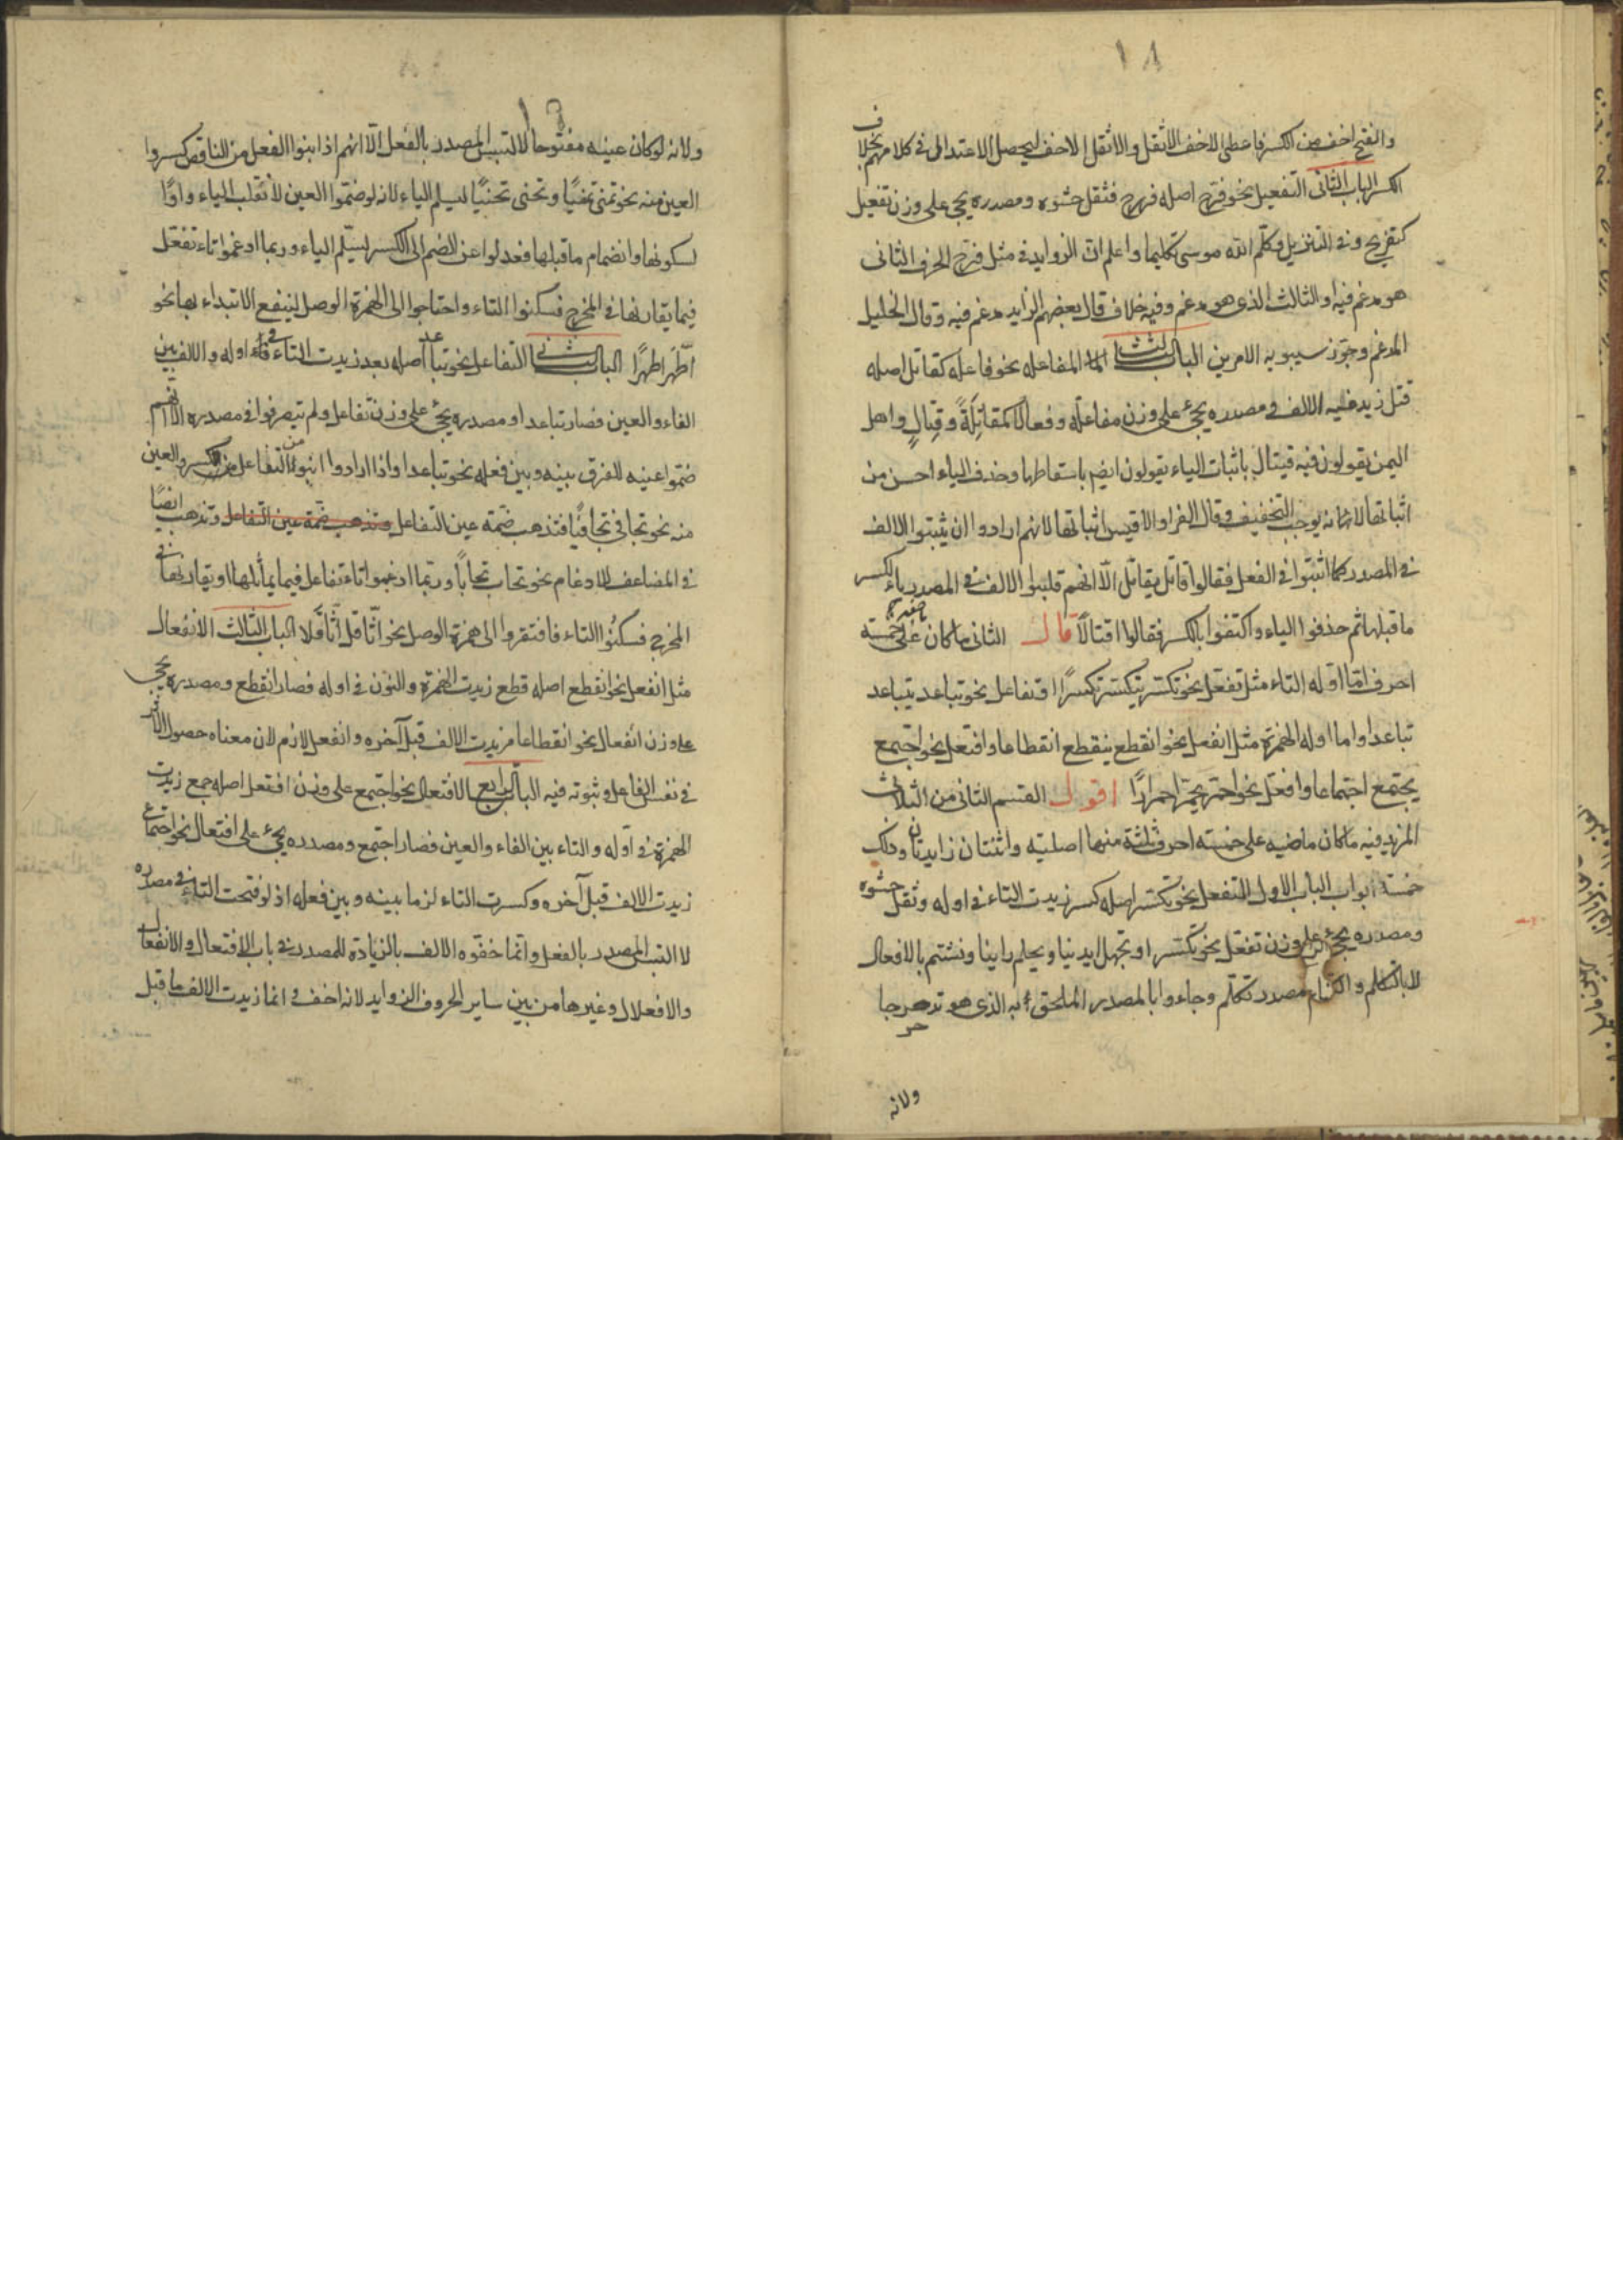 ١٨
والفتح اخف من الكسر فاعطى الاخف الاثقل والاثقل الاخف ليحصل الاعتدال في كلامهم بخلاف
الكسر الباب الثانى التفعيل نحو فرّح اصله فرح فثقل حشوه ومصدره يجئ على وزن تفعيل
كتفريح وفي التنزيل وكلّم الله موسى تكليما واعلم انّ الزوايد في مثل فرّح الحرف الثانى
هو مدغم فيه او الثالث الذى هو مدغم وفيه خلاف قال بعضهم الزايد مدغم فيه وقال الخليل
المدغم وجوّز سيبويه الامرين الباب الثالث المفاعله نحو فاعل كقاتل اصله
قتل زيد فيه الالف ومصدره يجئ على وزن مفاعلة وفعالا كمقاتلةً وقتالٍ واهل
اليمن يقولون فيه قيتال باثبات الياء يقولون ايضم باسقاطها وحذف الياء احسن من
اثباتها لانه يوجب التخفيف وقال الفرا والاقيس اثباتها لانهم ارادوا ان يثبتوا الالف
في المصدر كما اثبتوا في الفعل فقالوا قاتل يقاتل الّا انهم قلبوا الالف في المصدر ياء لكسر
ما قبلها ثم حذفوا الياء واكتفوا بالكسر فقالوا اقتالًا قال الثانى ما كان ماضيه على خمسة
احرف امّا اوّله التاء مثل تفعّل نحو تكسّر يتكسّر تكسّرًا او تفاعل نحو تباعد يتباعد
تباعدا واما اوله الهمزة مثل انفعل نحو انقطع ينقطع انقطاعا وافتعل نحو اجتمع
يجتمع اجتماعا وافعلّ نحو احمرّ يحمرّ احمرارًا اقول القسم الثانى من الثلاث
المزيد فيه ما كان ماضيه على خمسة احرف ثلثة منها اصلية واثنتان زايدتان وذلك
خمسة ابواب الباب الاول التفعل نحو تكسّر اصله كسر زيدت التاء في اوله وثقل حشوه
ومصدره يجئ على وزن تفعّل نحو تكسّر او تجهل
لا بالتكلم مصدر تكلّم وجاءوا بالمصدر الملحق به الذى هو تدحرجا
ولانه
ولانه لو كان عينه مفتوحا لالتبس المصدر بالفعل الّا انهم اذا بنوا الفعل من الناقص كسروا
العين منه نحو تمنّى تمنّيًا وتحنى تحنّيًا ليسلم الياء لانه لو ضمّوا العين لانقلب الياء واوًا
لسكونها وانضمام ما قبلها فعدلوا عن الضم الى الكسر ليسلم الياء وربما ادغموا تاء تفعّل
فيما يقاربها في المخرج فسكنوا التاء واحتاجوا الى الهمزة الوصل لينفع الابتداء بها نحو
اطّهّر اطّهّرًا الباب الثانى التفاعل نحو تباعد اصله بعد زيدت التاء في اوله والالف بين
الفاء والعين فصار تباعدا ومصدره يجئ على وزن تفاعل ولم يتصرفوا في مصدره الّا انهم
ضمّوا عينه للفرق بينه وبين فعله نحو تباعدا واذا ارادوا ابنوا التفاعل من كسروا العين
منه نحو تجافى تجافيًا فتذهب ضمّة عين التفاعل وتذهب ضمّة عين التفاعل وتذهب ايضًا
في المضاعف للادغام نحو تحابّ تحابًّا وربّما ادغموا تاء تفاعل فيما يماثلها او يقاربها في
المخرج فسكّنوا التاء فافتقروا الى همزة الوصل نحو اثّاقل اثّاقلا الباب الثالث الانفعال
مثل انفعل نحو انقطع اصله قطع زيدت الهمزة والنون في اوله فصار انقطع ومصدره يجئ
على وزن انفعال نحو انقطاعا مزيدت الالف قبل آخره وانفعل لازم لان معناه حصول الاثر
في نفس الفاعل وثبوته فيه الباب الرابع الافتعال نحو اجتمع على وزن افتعل اصله جمع زيدت
الهمزة في اوّله والتاء بين الفاء والعين فصار اجتمع ومصدره يجئ على افتعال نحو اجتماع
زيدت الالف قبل آخره وكسرت التاء لزما بينه وبين فعله اذ لو فتحت التاء في مصدره
لالتبس المصدر بالفعل وانّما خصّوه الالف بالزيادة للمصدر في باب الافتعال والانفعال
والافعلال وغيرها من بين ساير الحروف الزوايد لانه اخف وانما زيدت الالف ما قبل